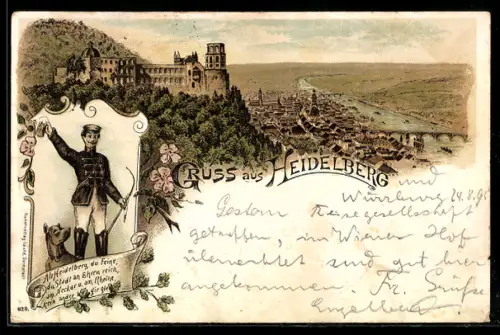 GRUSS aus HEIDELBERG
und
Würzburg 24.8.9
Gestern Reisegesellschaft
getroffen, im Wiener Hof
übernachtet und gut hier
angekommen. Fr. Grüße
Alt Heidelberg, du Feine,
du Stadt an Ehren reich,
am Neckar u. am Rheine
kein' andre kommt dir gleich